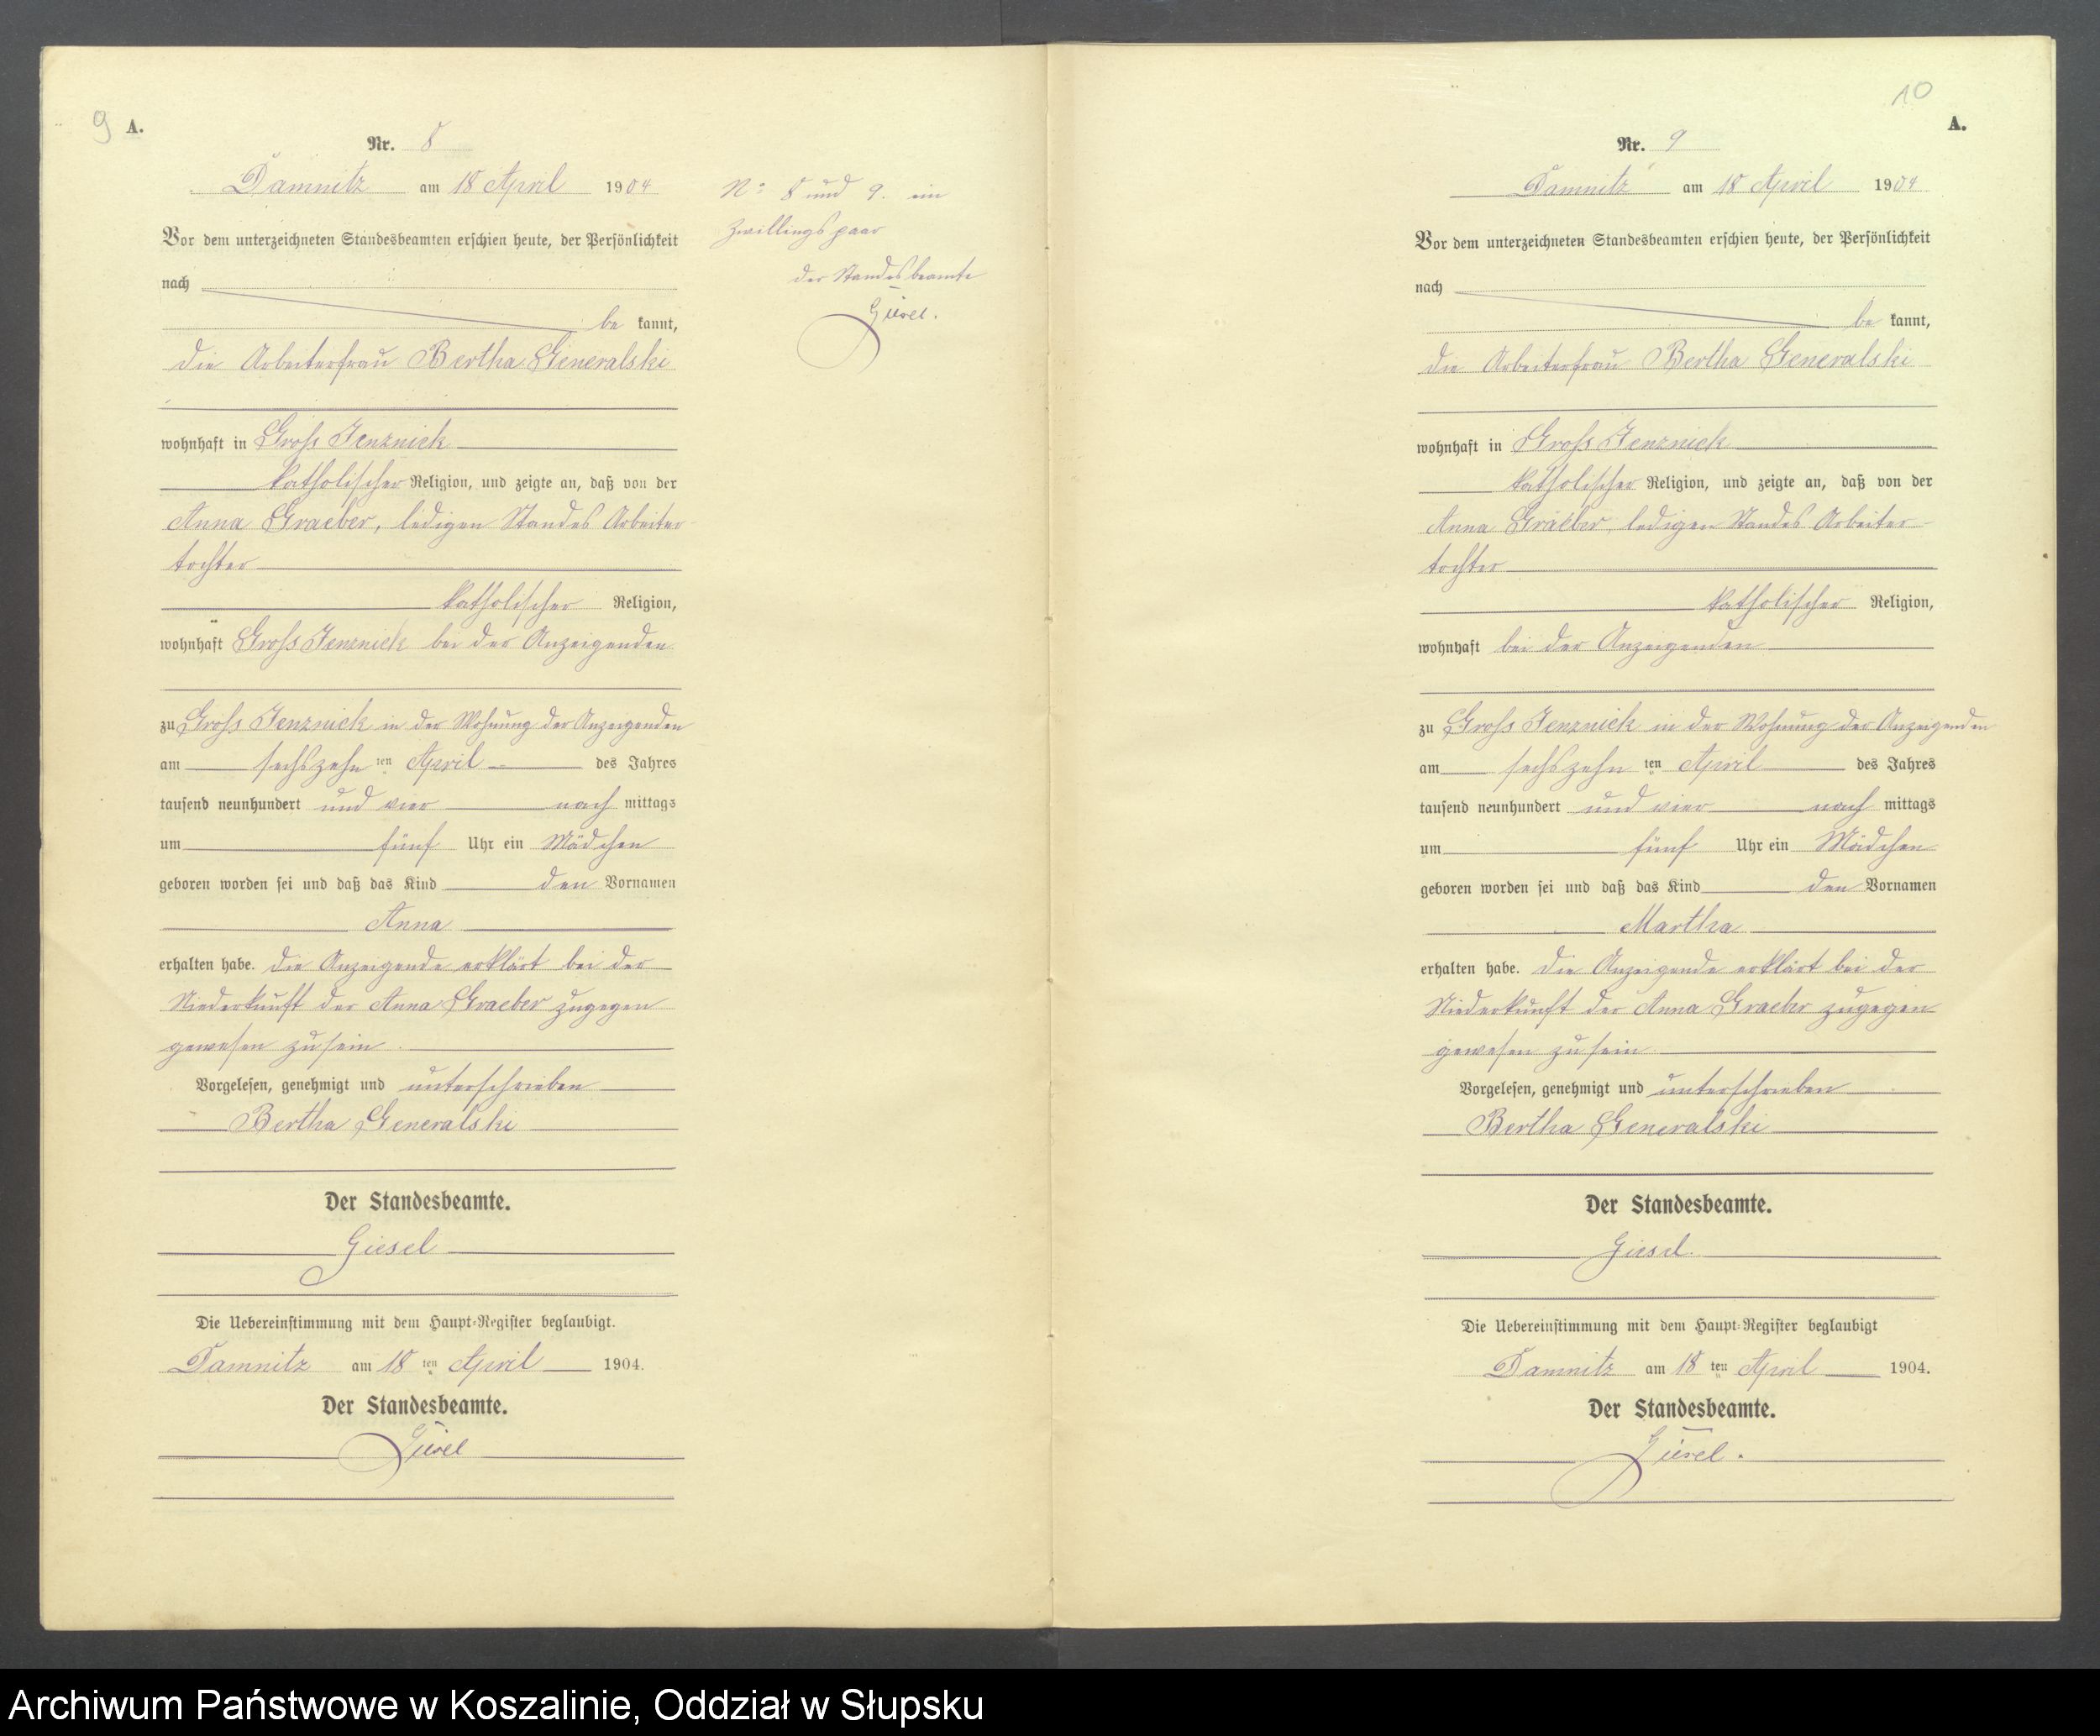 9 A.
Nr. 8
Damnitz am 18 April 1904
Vor dem unterzeichneten Standesbeamten erschien heute, der Persönlichkeit
nach
be kannt,
die Arbeiterfrau Bertha Generalski
wohnhaft in Gross Jenznick
katholischer Religion, und zeigte an, daß von der
Anna Graeber, ledigen Standes Arbeiter-
tochter
katholischer Religion,
wohnhaft Gross Jenznick bei der Anzeigenden
zu Gross Jenznick in der Wohnung der Anzeigenden
am sechszehn ten April des Jahres
tausend neunhundert und vier nach mittags
um fünf Uhr ein Mädchen
geboren worden sei und daß das Kind den Vornamen
Anna
erhalten habe. die Anzeigende erklärt bei der
Niederkunft der Anna Graeber zugegen
gewesen zu sein.
Vorgelesen, genehmigt und unterschrieben
Bertha Generalski
Der Standesbeamte.
Giesel
Die Uebereinstimmung mit dem Haupt-Register beglaubigt.
Damnitz am 18 ten April 1904.
Der Standesbeamte.
Giesel
No 8 und 9. ein
Zwillingspaar
der Standesbeamte
Giesel.
10
A.
Nr. 9
Damnitz am 18 April 1904
Vor dem unterzeichneten Standesbeamten erschien heute, der Persönlichkeit
nach
be kannt,
die Arbeiterfrau Bertha Generalski
wohnhaft in Gross Jenznick
katholischer Religion, und zeigte an, daß von der
Anna Graeber, ledigen Standes Arbeiter-
tochter
katholischer Religion,
wohnhaft bei der Anzeigenden
zu Gross Jenznick in der Wohnung der Anzeigenden
am sechszehn ten April des Jahres
tausend neunhundert und vier nach mittags
um fünf Uhr ein Mädchen
geboren worden sei und daß das Kind den Vornamen
Martha
erhalten habe. die Anzeigende erklärt bei der
Niederkunft der Anna Graeber zugegen
gewesen zu sein
Vorgelesen, genehmigt und unterschrieben
Bertha Generalski
Der Standesbeamte.
Giesel.
Die Uebereinstimmung mit dem Haupt-Register beglaubigt
Damnitz am 18 ten April 1904.
Der Standesbeamte.
Giesel.
Archiwum Państwowe w Koszalinie, Oddział w Słupsku